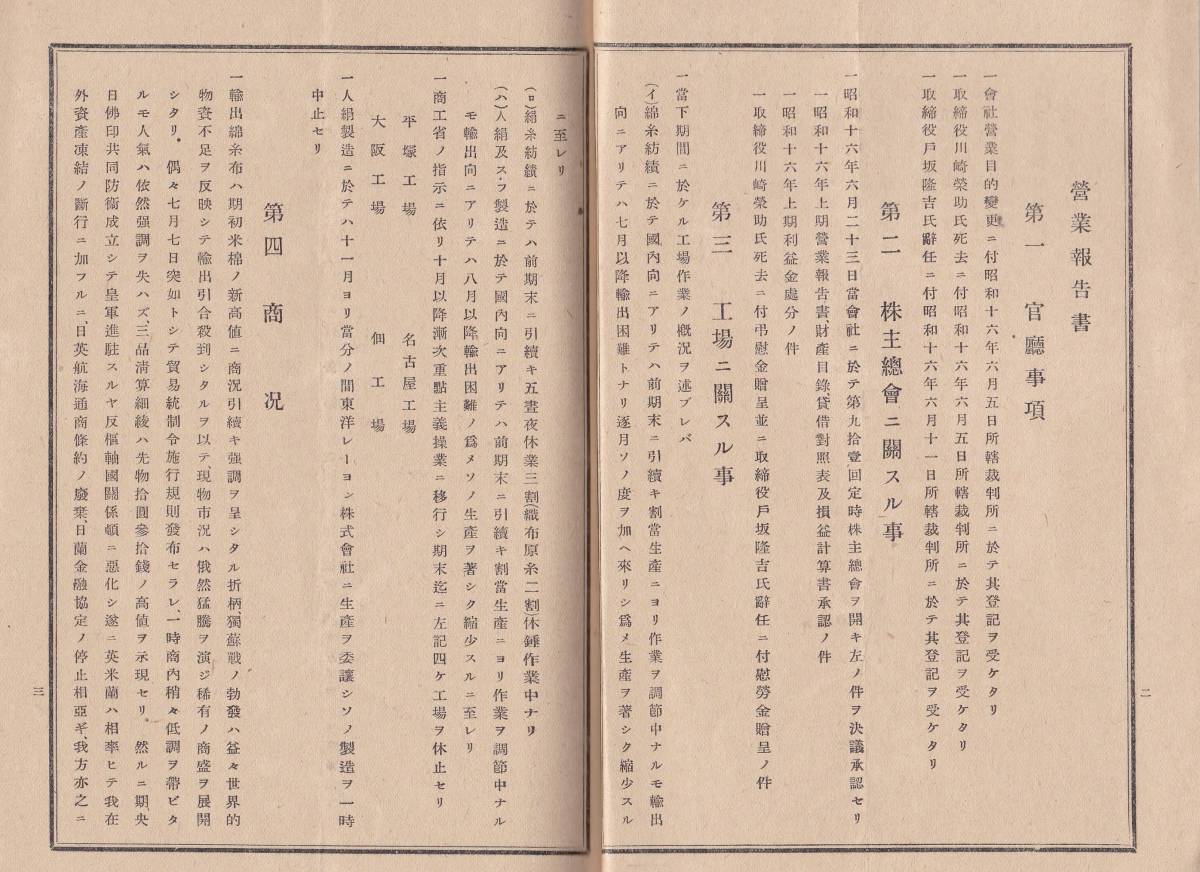 營業報告書
第一 官廳事項
一會社營業目的變更ニ付昭和十六年六月五日所轄裁判所ニ於テ其登記ヲ受ケタリ
一取締役川崎榮助氏死去ニ付昭和十六年六月五日所轄裁判所ニ於テ其登記ヲ受ケタリ
一取締役戸坂隆吉氏辭任ニ付昭和十六年六月十一日所轄裁判所ニ於テ其登記ヲ受ケタリ
第二 株主總會ニ關スル事
一昭和十六年六月二十三日當會社ニ於テ第九拾壹回定時株主總會ヲ開キ左ノ件ヲ決議承認セリ
一昭和十六年上期營業報告書、財產目錄、貸借對照表及損益計算書承認ノ件
一昭和十六年上期利益金處分ノ件
一取締役川崎榮助氏死去ニ付弔慰金贈呈並ニ取締役戸坂隆吉氏辭任ニ付慰勞金贈呈ノ件
第三 工場ニ關スル事
一當下期間ニ於ケル工場作業ノ概況ヲ述ブレバ
(イ)綿糸紡績ニ於テ國內向ニアリテハ前期末ニ引續キ割當生產ニヨリ作業ヲ調節中ナルモ輸出
向ニアリテハ七月以降輸出困難トナリ逐月ソノ度ヲ加ヘ來リシ爲メ生產ヲ著シク縮少スル
二
ニ至レリ
(ロ)絹糸紡績ニ於テハ前期末ニ引續キ五晝夜休業三割(織布原糸二割)休錘作業中ナリ
(ハ)人絹及ス・フ製造ニ於テ國內向ニアリテハ前期末ニ引續キ割當生產ニヨリ作業ヲ調節中ナル
モ輸出向ニアリテハ八月以降輸出困難ノ爲メソノ生產ヲ著シク縮少スルニ至レリ
一商工省ノ指示ニ依リ十月以降漸次重點主義操業ニ移行シ期末迄ニ左記四ケ工場ヲ休止セリ
平塚工場 名古屋工場
大阪工場 佃工場
一人絹製造ニ於テハ十一月ヨリ當分ノ間東洋レーヨン株式會社ニ生產ヲ委讓シソノ製造ヲ一時
中止セリ
第四 商況
一輸出綿糸布ハ期初米棉ノ新高値ニ商況引續キ强調ヲ呈シタル折柄、獨蘇戰ノ勃發ハ益々世界的
物資不足ヲ反映シテ輸出引合殺到シタルヲ以テ、現物市況ハ俄然猛騰ヲ演ジ稀有ノ商盛ヲ展開
シタリ。偶々七月七日突如トシテ貿易統制令施行規則發布セラレ、一時商內稍々低調ヲ帶ビタ
ルモ人氣ハ依然强調ヲ失ハズ、三品淸算細綾ハ先物拾圓參拾錢ノ高値ヲ示現セリ。然ルニ期央
日佛印共同防衞成立シテ皇軍進駐スルヤ反樞軸國關係頓ニ惡化シ遂ニ英米蘭ハ相率ヒテ我在
外資產凍結ノ斷行ニ加フルニ、日英航海通商條約ノ廢棄、日蘭金融協定ノ停止相亞ギ、我方亦之ニ
三